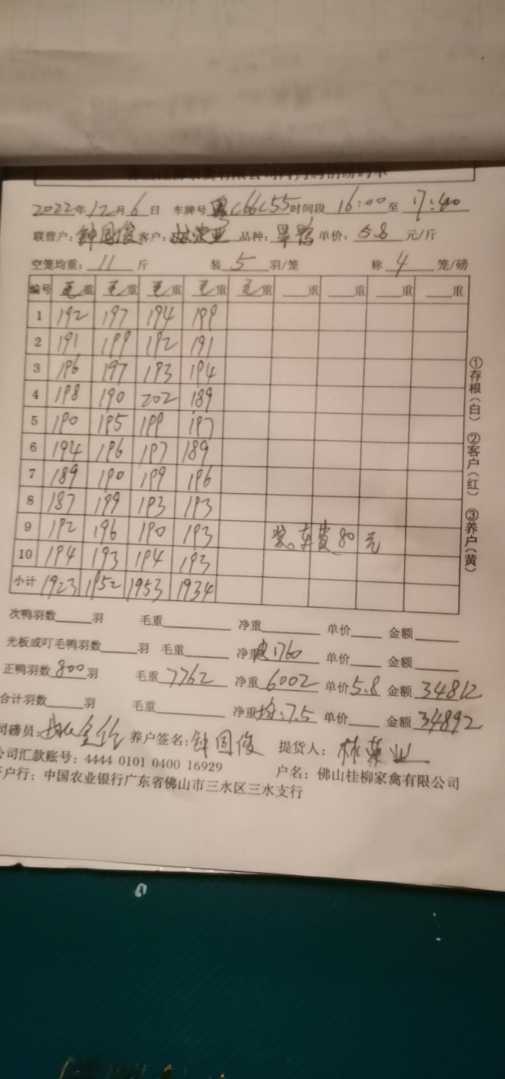 2022年12月6日 车牌号 粤C66C55 时间段 16:00 至 17:40
联营户: 钟国俊 客户: 品种: 旱鸭 单价: 5.8 元/斤
空笼均重: 11 斤 装 5 羽/笼 称 4 笼/磅
编号 毛重 毛重 毛重 毛重 毛重 重 重 重 重
1 192 197 194 199
2 191 199 192 191
3 196 197 193 194
4 198 190 202 189
5 190 195 199 197
6 194 196 197 189
7 189 190 199 196
8 187 199 193 193
9 192 196 190 193 装车费80元
10 194 193 194 193
小计 1923 1952 1953 1934
①存根(白) ②客户(红) ③养户(黄)
次鸭羽数 羽 毛重 净重 单价 金额
光板或叮毛鸭羽数 羽 毛重 净重 1760 单价 金额
正鸭羽数 800 羽 毛重 7762 净重 6002 单价 5.8 金额 34812
合计羽数 羽 毛重 净重 均:7.5 单价 金额 34892
司磅员: 养户签名: 钟国俊 提货人: 林荣业
公司汇款账号: 4444 0101 0400 16929 户名: 佛山桂柳家禽有限公司
开户行: 中国农业银行广东省佛山市三水区三水支行